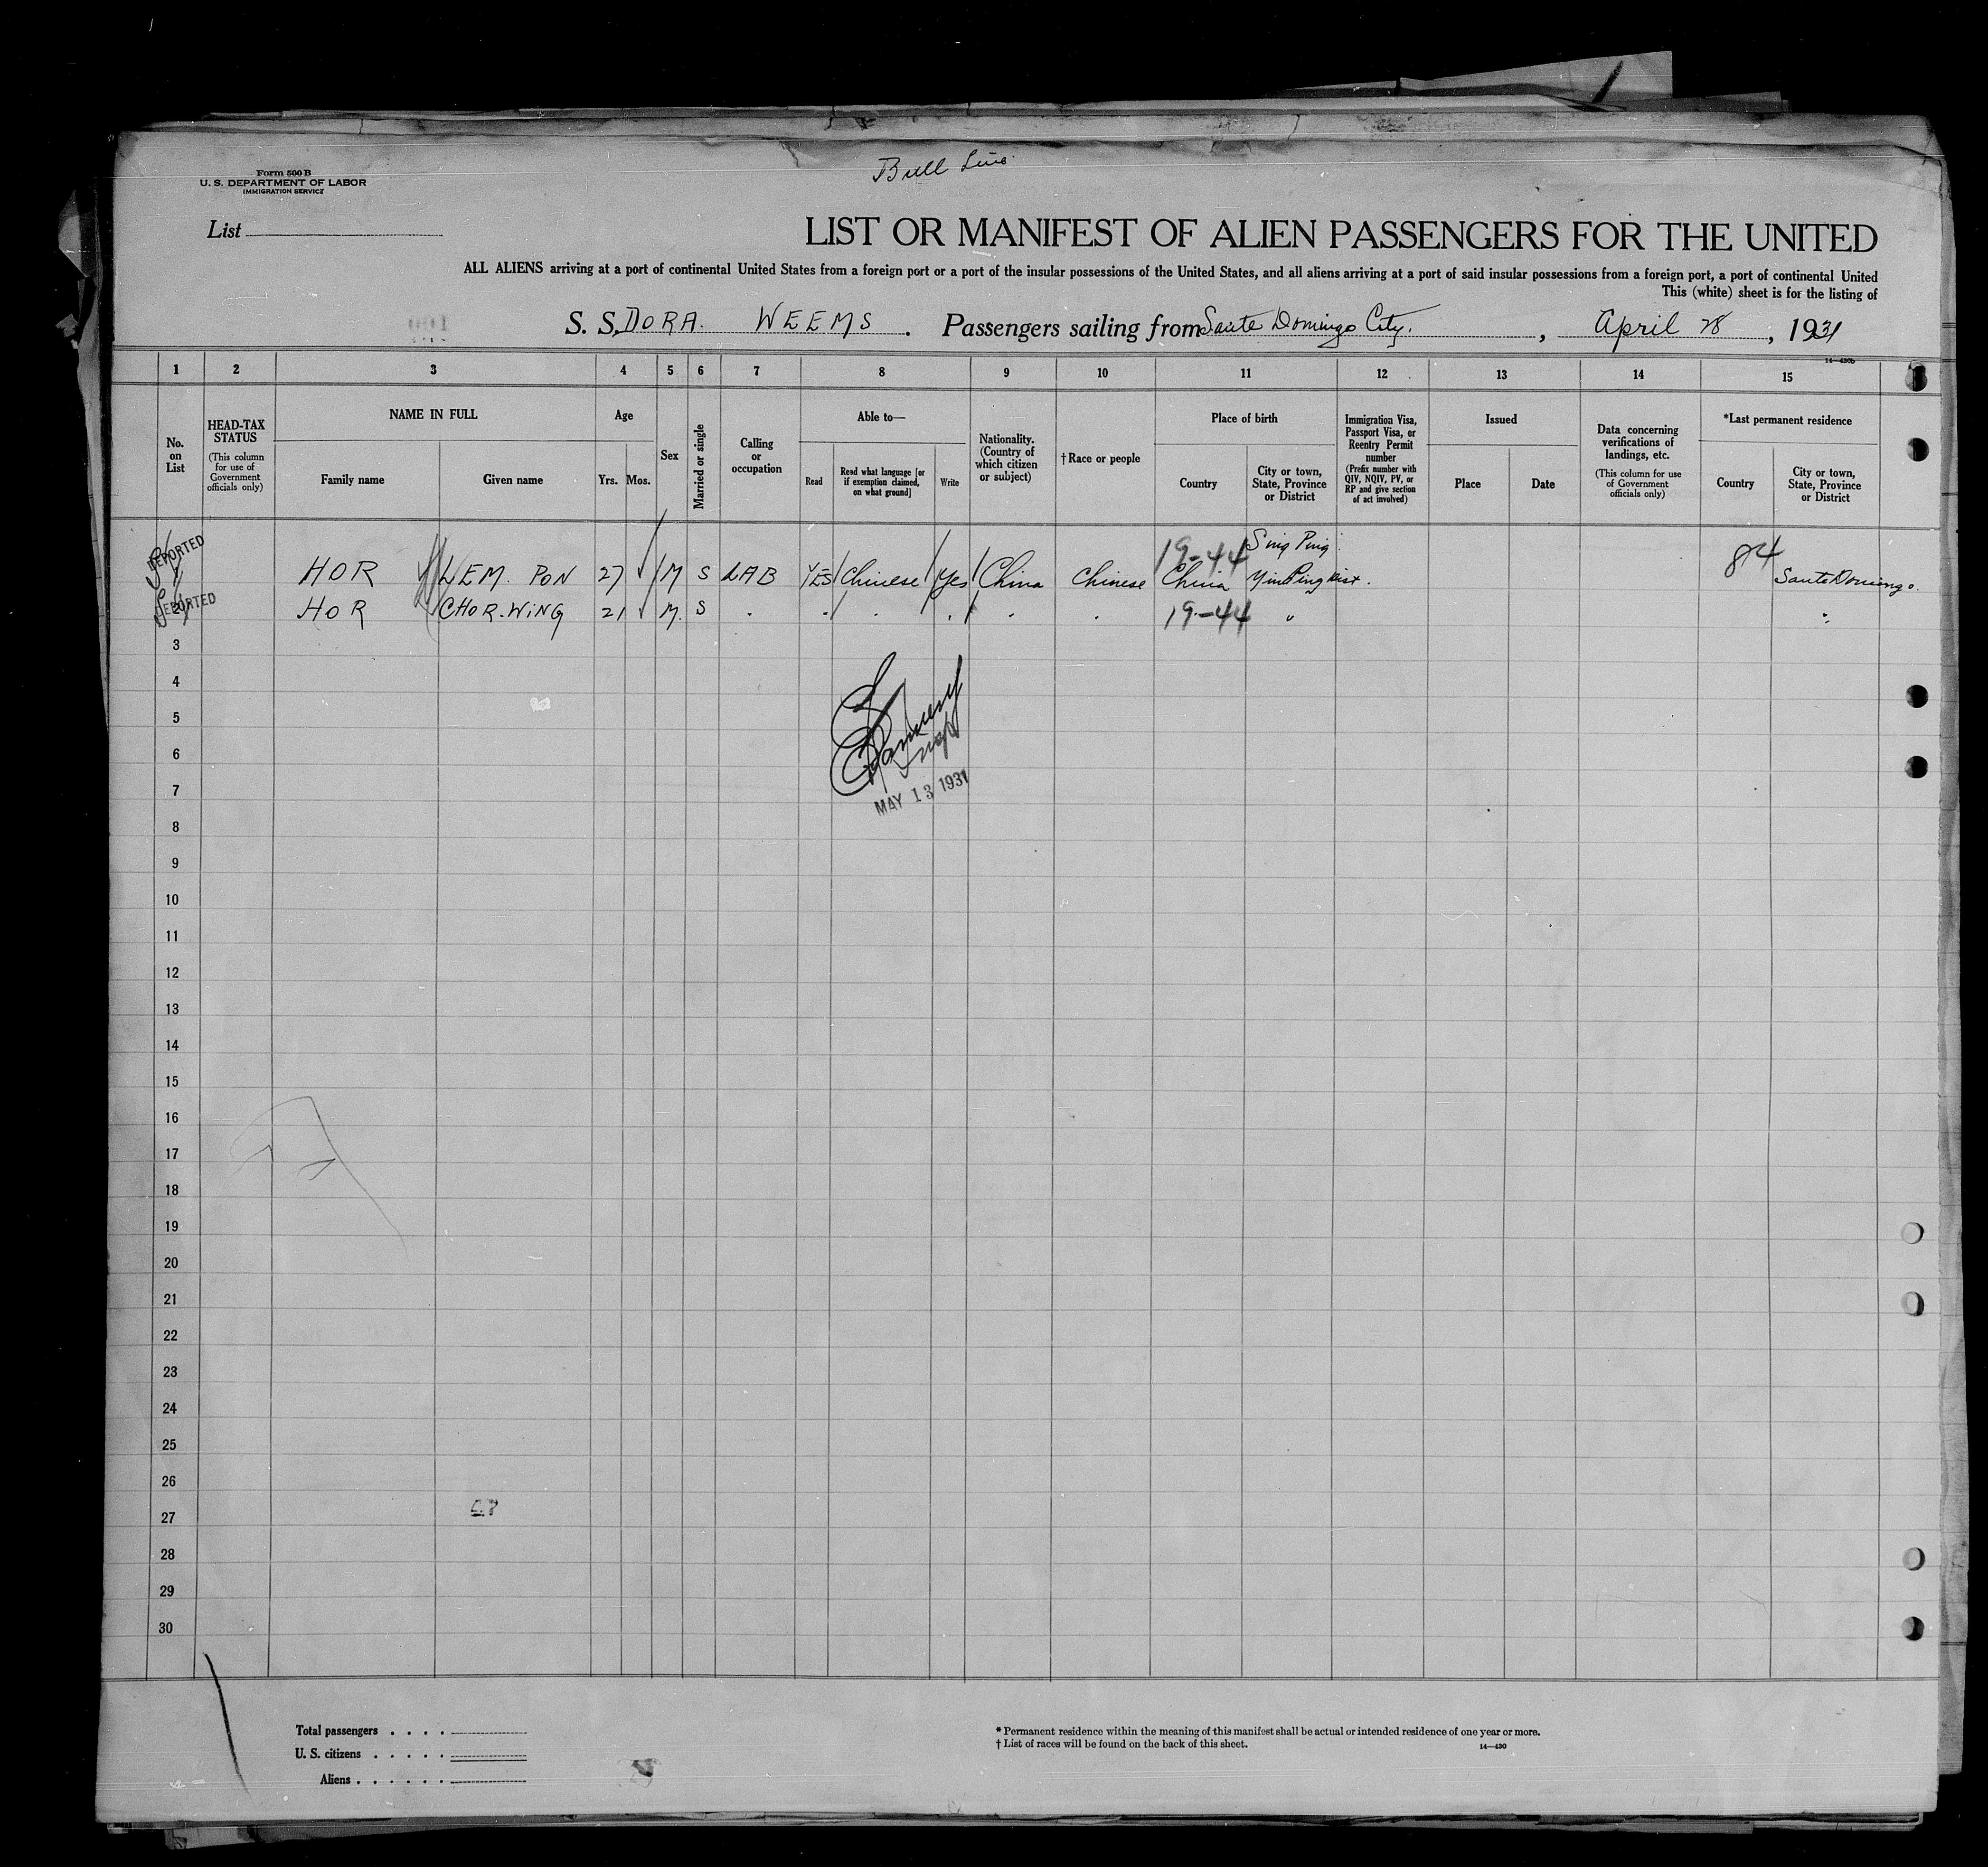 Bull Line
Form 500 B
U. S. DEPARTMENT OF LABOR
IMMIGRATION SERVICE
List
LIST OR MANIFEST OF ALIEN PASSENGERS FOR THE UNITED
ALL ALIENS arriving at a port of continental United States from a foreign port or a port of the insular possessions of the United States, and all aliens arriving at a port of said insular possessions from a foreign port, a port of continental United
This (white) sheet is for the listing of
S. S. DORA. WEEMS. Passengers sailing from Santo Domingo City., April 28, 1931
14—430b
1 2 3 4 5 6 7 8 9 10 11 12 13 14 15
No. on List
HEAD-TAX STATUS
(This column for use of Government officials only)
NAME IN FULL
Family name
Given name
Age
Yrs. Mos.
Sex
Married or single
Calling or occupation
Able to—
Read
Read what language [or if exemption claimed, on what ground]
Write
Nationality. (Country of which citizen or subject)
†Race or people
Place of birth
Country
City or town, State, Province or District
Immigration Visa, Passport Visa, or Reentry Permit number
(Prefix number with QIV, NQIV, PV, or RP and give section of act involved)
Issued
Place
Date
Data concerning verifications of landings, etc.
(This column for use of Government officials only)
*Last permanent residence
Country
City or town, State, Province or District
19-44 Sing Ping 84
DEPORTED HOR LEM. PON 27 M S LAB YES Chinese Yes China Chinese China Yin Ping Dist. Santo Domingo.
DEPORTED HOR CHOR-WING 21 M. S 19-44 "
3
4
5
6
7
MAY 13 1931
8
9
10
11
12
13
14
15
16
17
18
19
20
21
22
23
24
25
26
27
28
29
30
Total passengers . . . .
U. S. citizens . . . . .
Aliens . . . . . .
* Permanent residence within the meaning of this manifest shall be actual or intended residence of one year or more.
† List of races will be found on the back of this sheet.
14—430